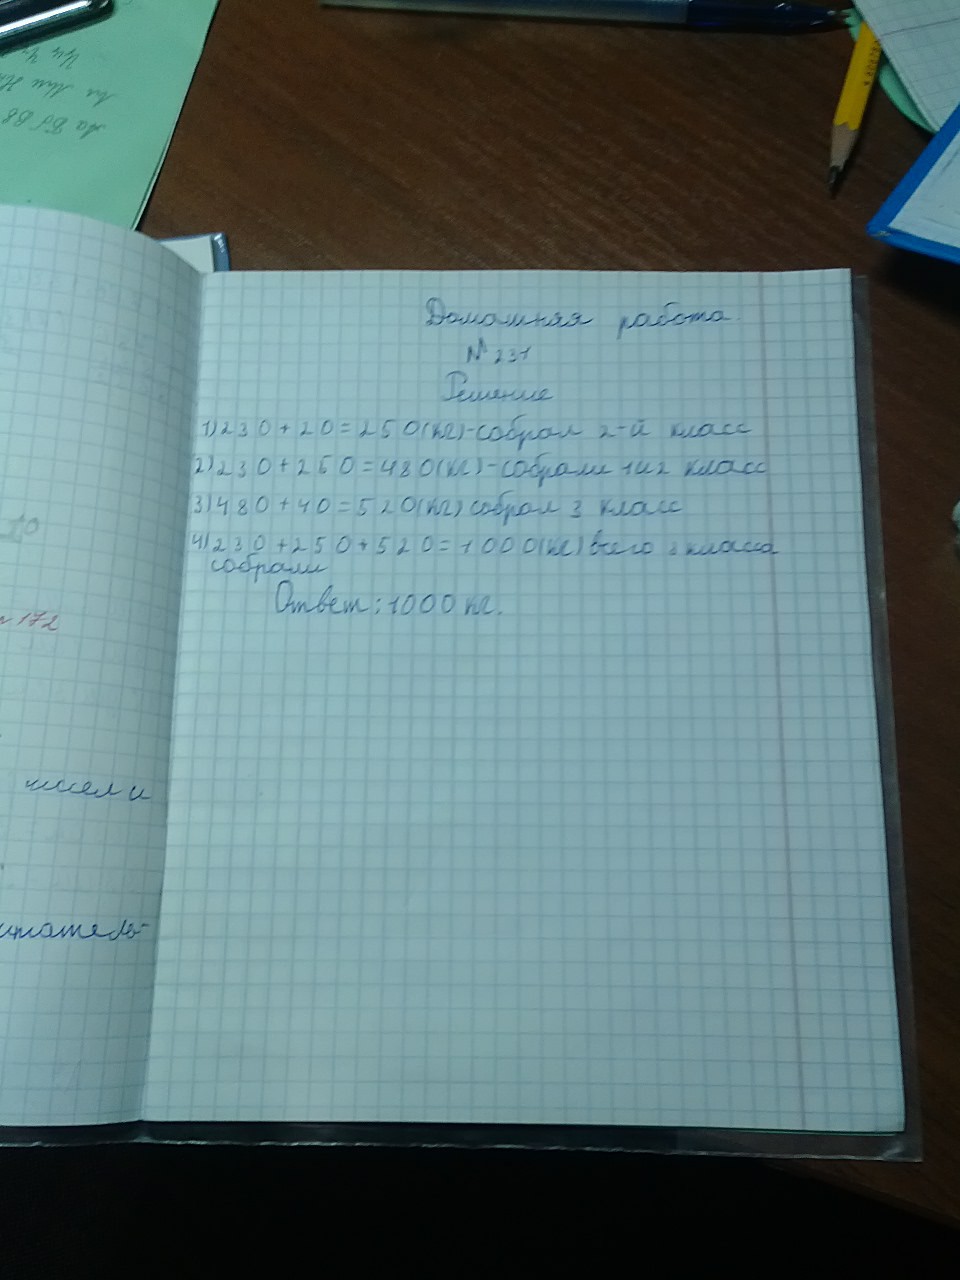 Домашняя работа.
№ 231
Решение
1) 230 + 20 = 250 (кг) - собрал 2-й класс
2) 230 + 250 = 480 (кг) - собрали 1 и 2 класс
3) 480 + 40 = 520 (кг) собрал 3 класс
4) 230 + 250 + 520 = 1000 (кг) всего 3 класса
собрали
Ответ: 1000 кг.
172